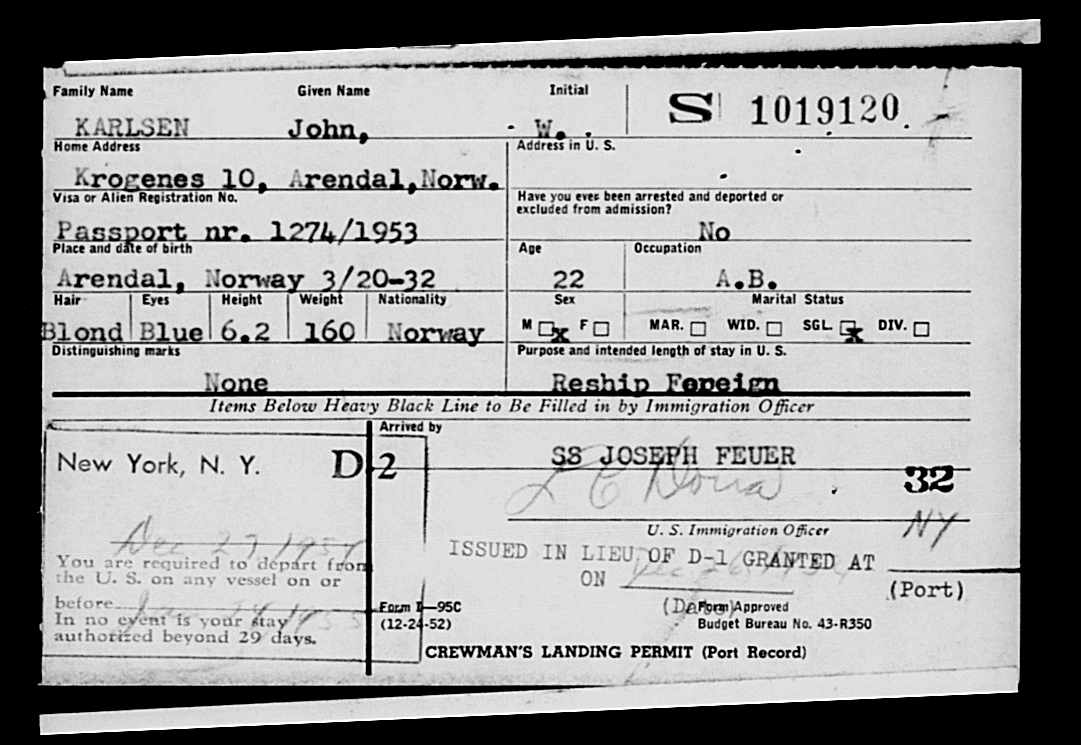 Family Name Given Name Initial
S 1019120
KARLSEN John, W.
Home Address Address in U. S.
Krogenes 10, Arendal, Norw.
Visa or Alien Registration No. Have you ever been arrested and deported or
excluded from admission?
Passport nr. 1274/1953 No
Place and date of birth Age Occupation
Arendal, Norway 3/20-32 22 A.B.
Hair Eyes Height Weight Nationality Sex Marital Status
Blond Blue 6.2 160 Norway M x F MAR. WID. SGL. x DIV.
Distinguishing marks Purpose and intended length of stay in U. S.
None Reship Foreign
Items Below Heavy Black Line to Be Filled in by Immigration Officer
Arrived by
New York, N. Y. D-2 SS JOSEPH FEUER
32
U. S. Immigration Officer NY
Dec 27 1954
ISSUED IN LIEU OF D-1 GRANTED AT
You are required to depart from
the U. S. on any vessel on or ON Dec 26 1954
(Port)
before Jan 24 1955 Form I-95C (Date) Form Approved
In no event is your stay (12-24-52) Budget Bureau No. 43-R350
authorized beyond 29 days.
CREWMAN'S LANDING PERMIT (Port Record)